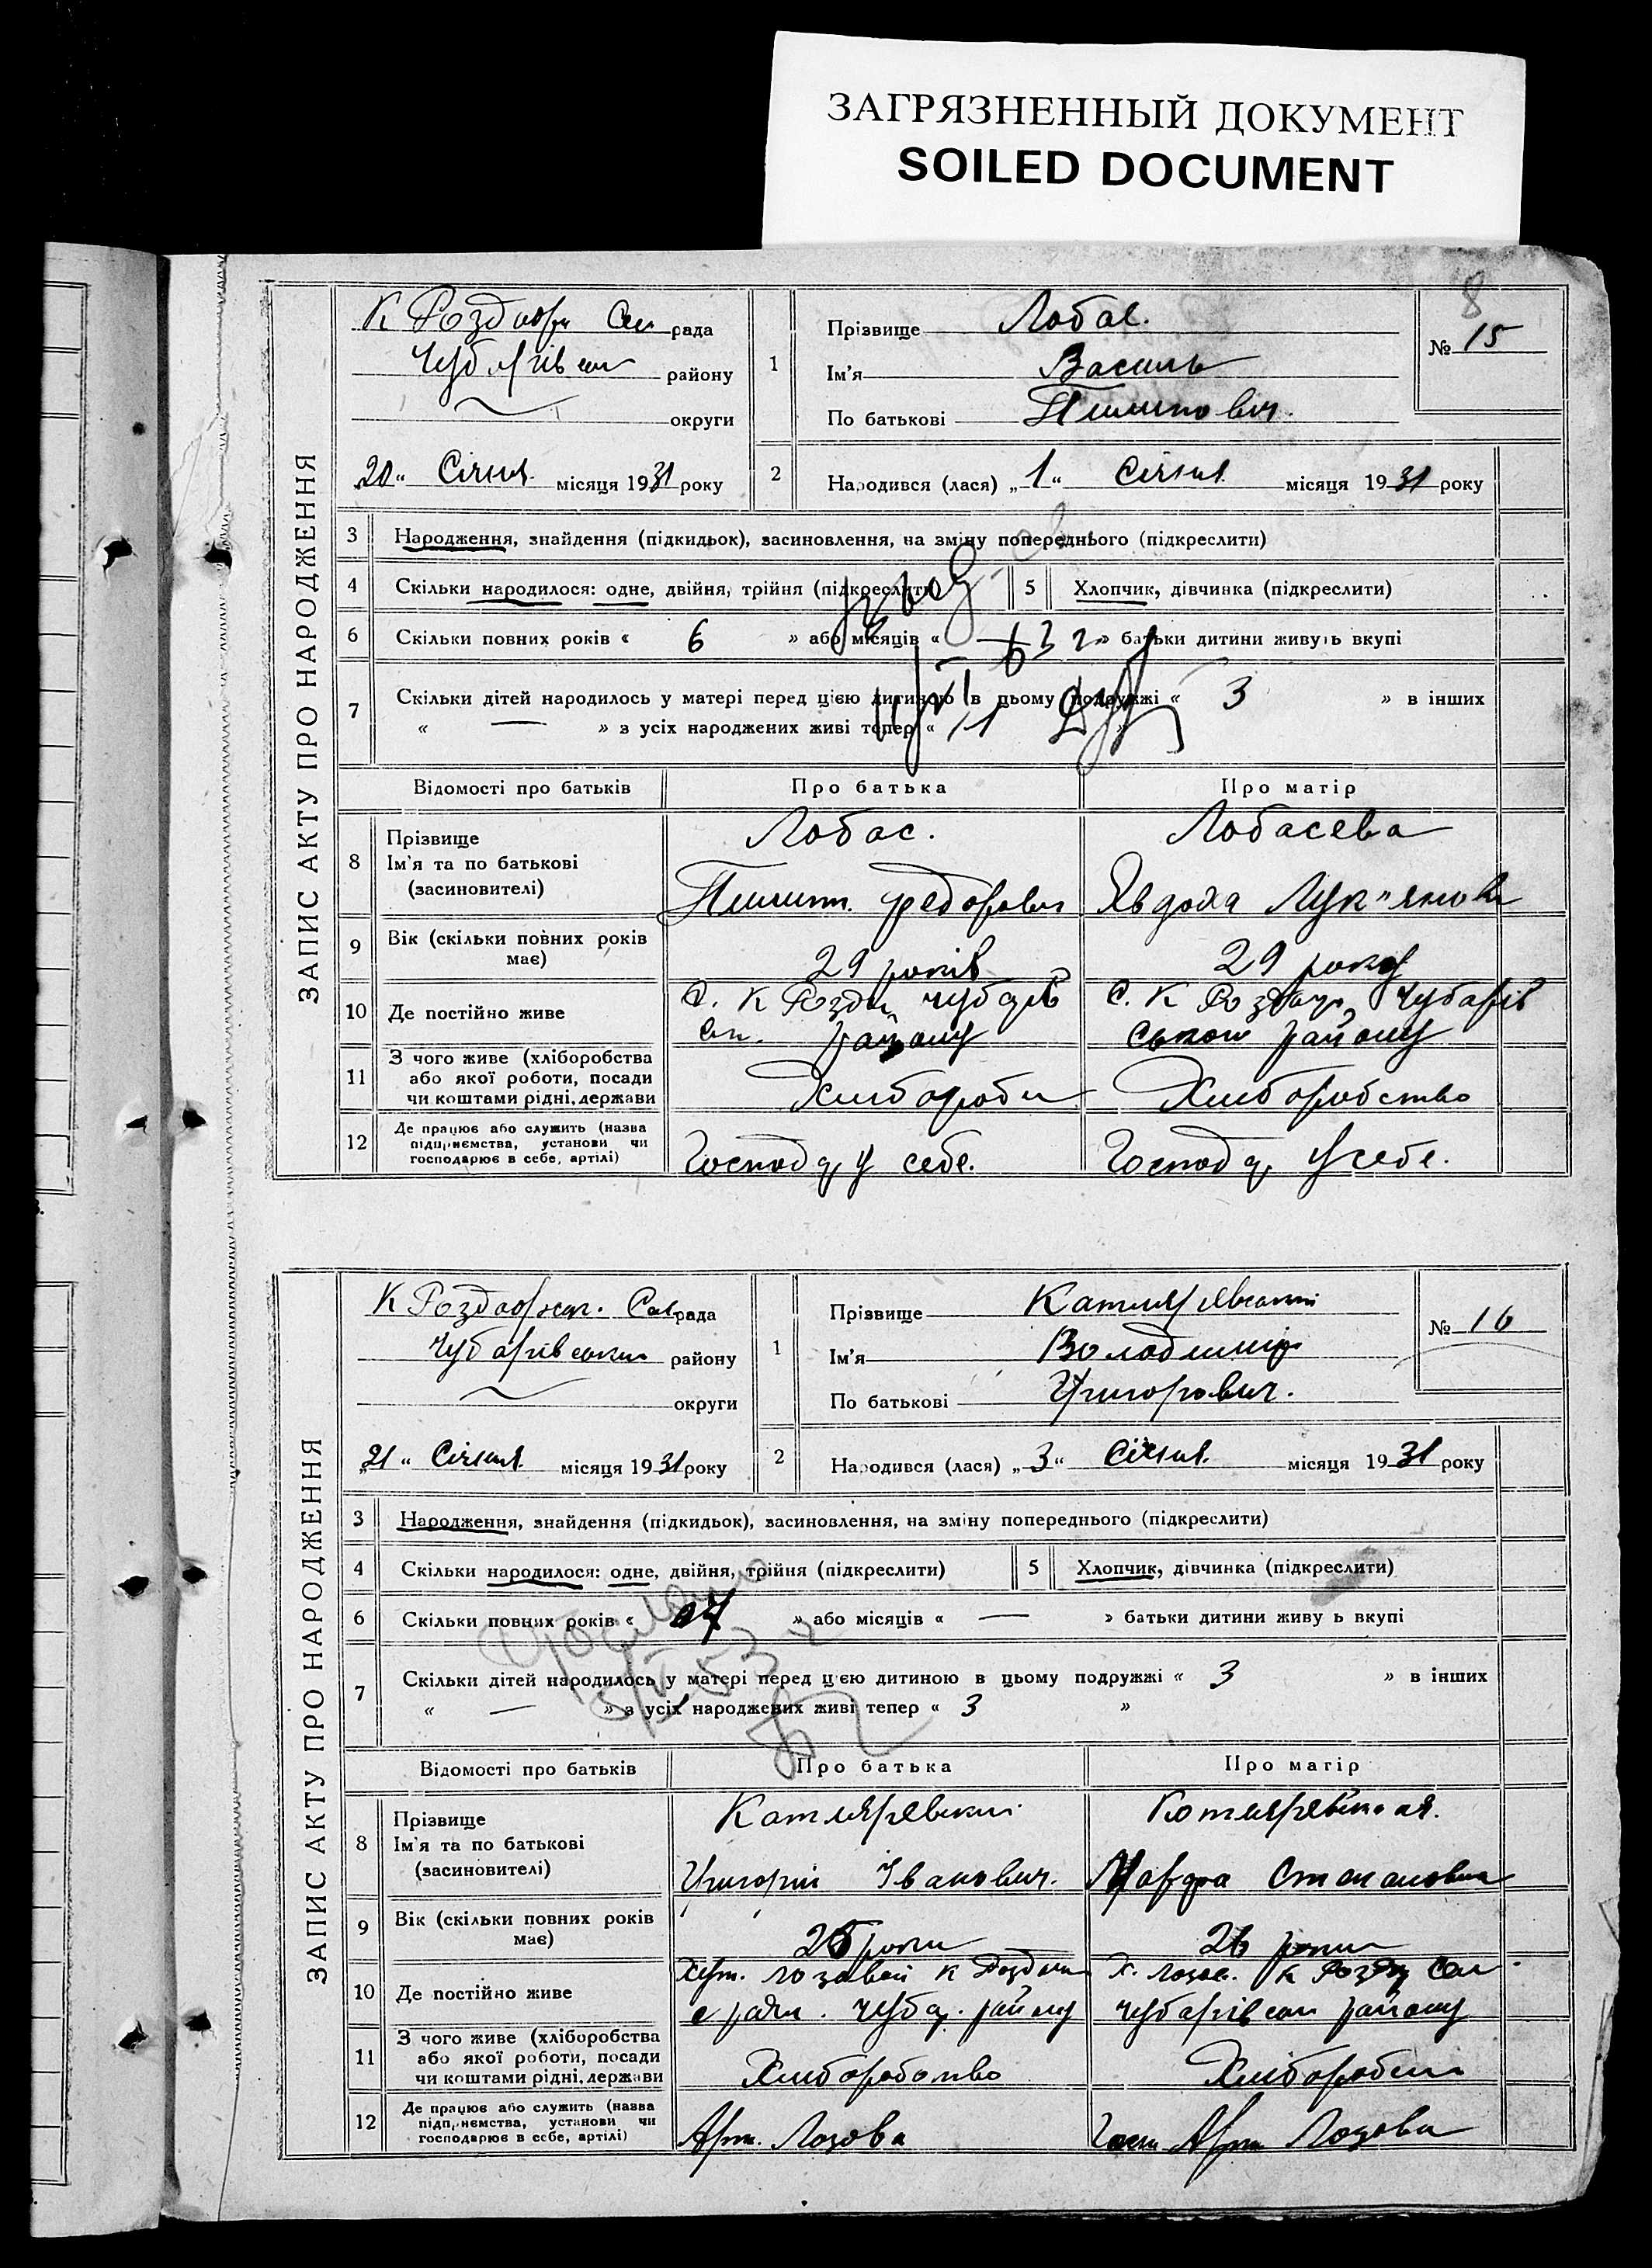 ЗАГРЯЗНЕННЫЙ ДОКУМЕНТ
SOILED DOCUMENT
8
ЗАПИС АКТУ ПРО НАРОДЖЕННЯ
К Роздори Сел рада
району
округи
„20“ Січня місяця 1931 року
1
Прізвище Лобас.
Ім'я Василь
По батькові Пилипович.
№ 15
2
Народився (лася) „1“ Січня місяця 1931 року
3 Народження, знайдення (підкидьок), засиновлення, на зміну попереднього (підкреслити)
4 Скільки народилося: одне, двійня, трійня (підкреслити) 5 Хлопчик, дівчинка (підкреслити)
6 Скільки повних років « 6 » або місяців « » батьки дитини живуть вкупі
7 Скільки дітей народилось у матері перед цією дитиною в цьому подружжі « 3 » в інших
« — » з усіх народжених живі тепер «
Відомості про батьків Про батька Про матір
8 Прізвище Лобас. Лобасева
Ім'я та по батькові
(засиновителі) Пилип Федорович Явдоха Лук"яновн
9 Вік (скільки повних років має) 29 років 29 року
10 Де постійно живе с. К Розд чубарів с. К Роздор, Чубарів
ськ. району ського району
11 З чого живе (хліборобства
або якої роботи, посади
чи коштами рідні, держави Хлібороби Хліборобство
12 Де працює або служить (назва
підприємства, установи чи
господарює в себе, артілі) Господ у себе. Господ у себе.
ЗАПИС АКТУ ПРО НАРОДЖЕННЯ
К Роздорськ. Сел рада
Чубарівськи району
округи
„21“ Січня місяця 1931 року
1
Прізвище Катляревський
Ім'я Володимир
По батькові Григорович.
№ 16
2
Народився (лася) „3“ Січня місяця 1931 року
3 Народження, знайдення (підкидьок), засиновлення, на зміну попереднього (підкреслити)
4 Скільки народилося: одне, двійня, трійня (підкреслити) 5 Хлопчик, дівчинка (підкреслити)
6 Скільки повних років « 7 » або місяців « — » батьки дитини живу ь вкупі
7 Скільки дітей народилось у матері перед цією дитиною в цьому подружжі « 3 » в інших
« — » з усіх народжених живі тепер « 3 »
Відомості про батьків Про батька Про матір
8 Прізвище Катляревский Котляревская.
Ім'я та по батькові
(засиновителі) Григорій Іванович. Марфа Степановна
9 Вік (скільки повних років має) роки 26 роки
10 Де постійно живе Хут. Лозовай К Х. Лозов. К Розд Сел
с раяи. чубар. району чубарівськ району
11 З чого живе (хліборобства
або якої роботи, посади
чи коштами рідні, держави Хліборобство Хлібороби
12 Де працює або служить (назва
підприємства, установи чи
господарює в себе, артілі) Арт. Лозова Арт Лозова